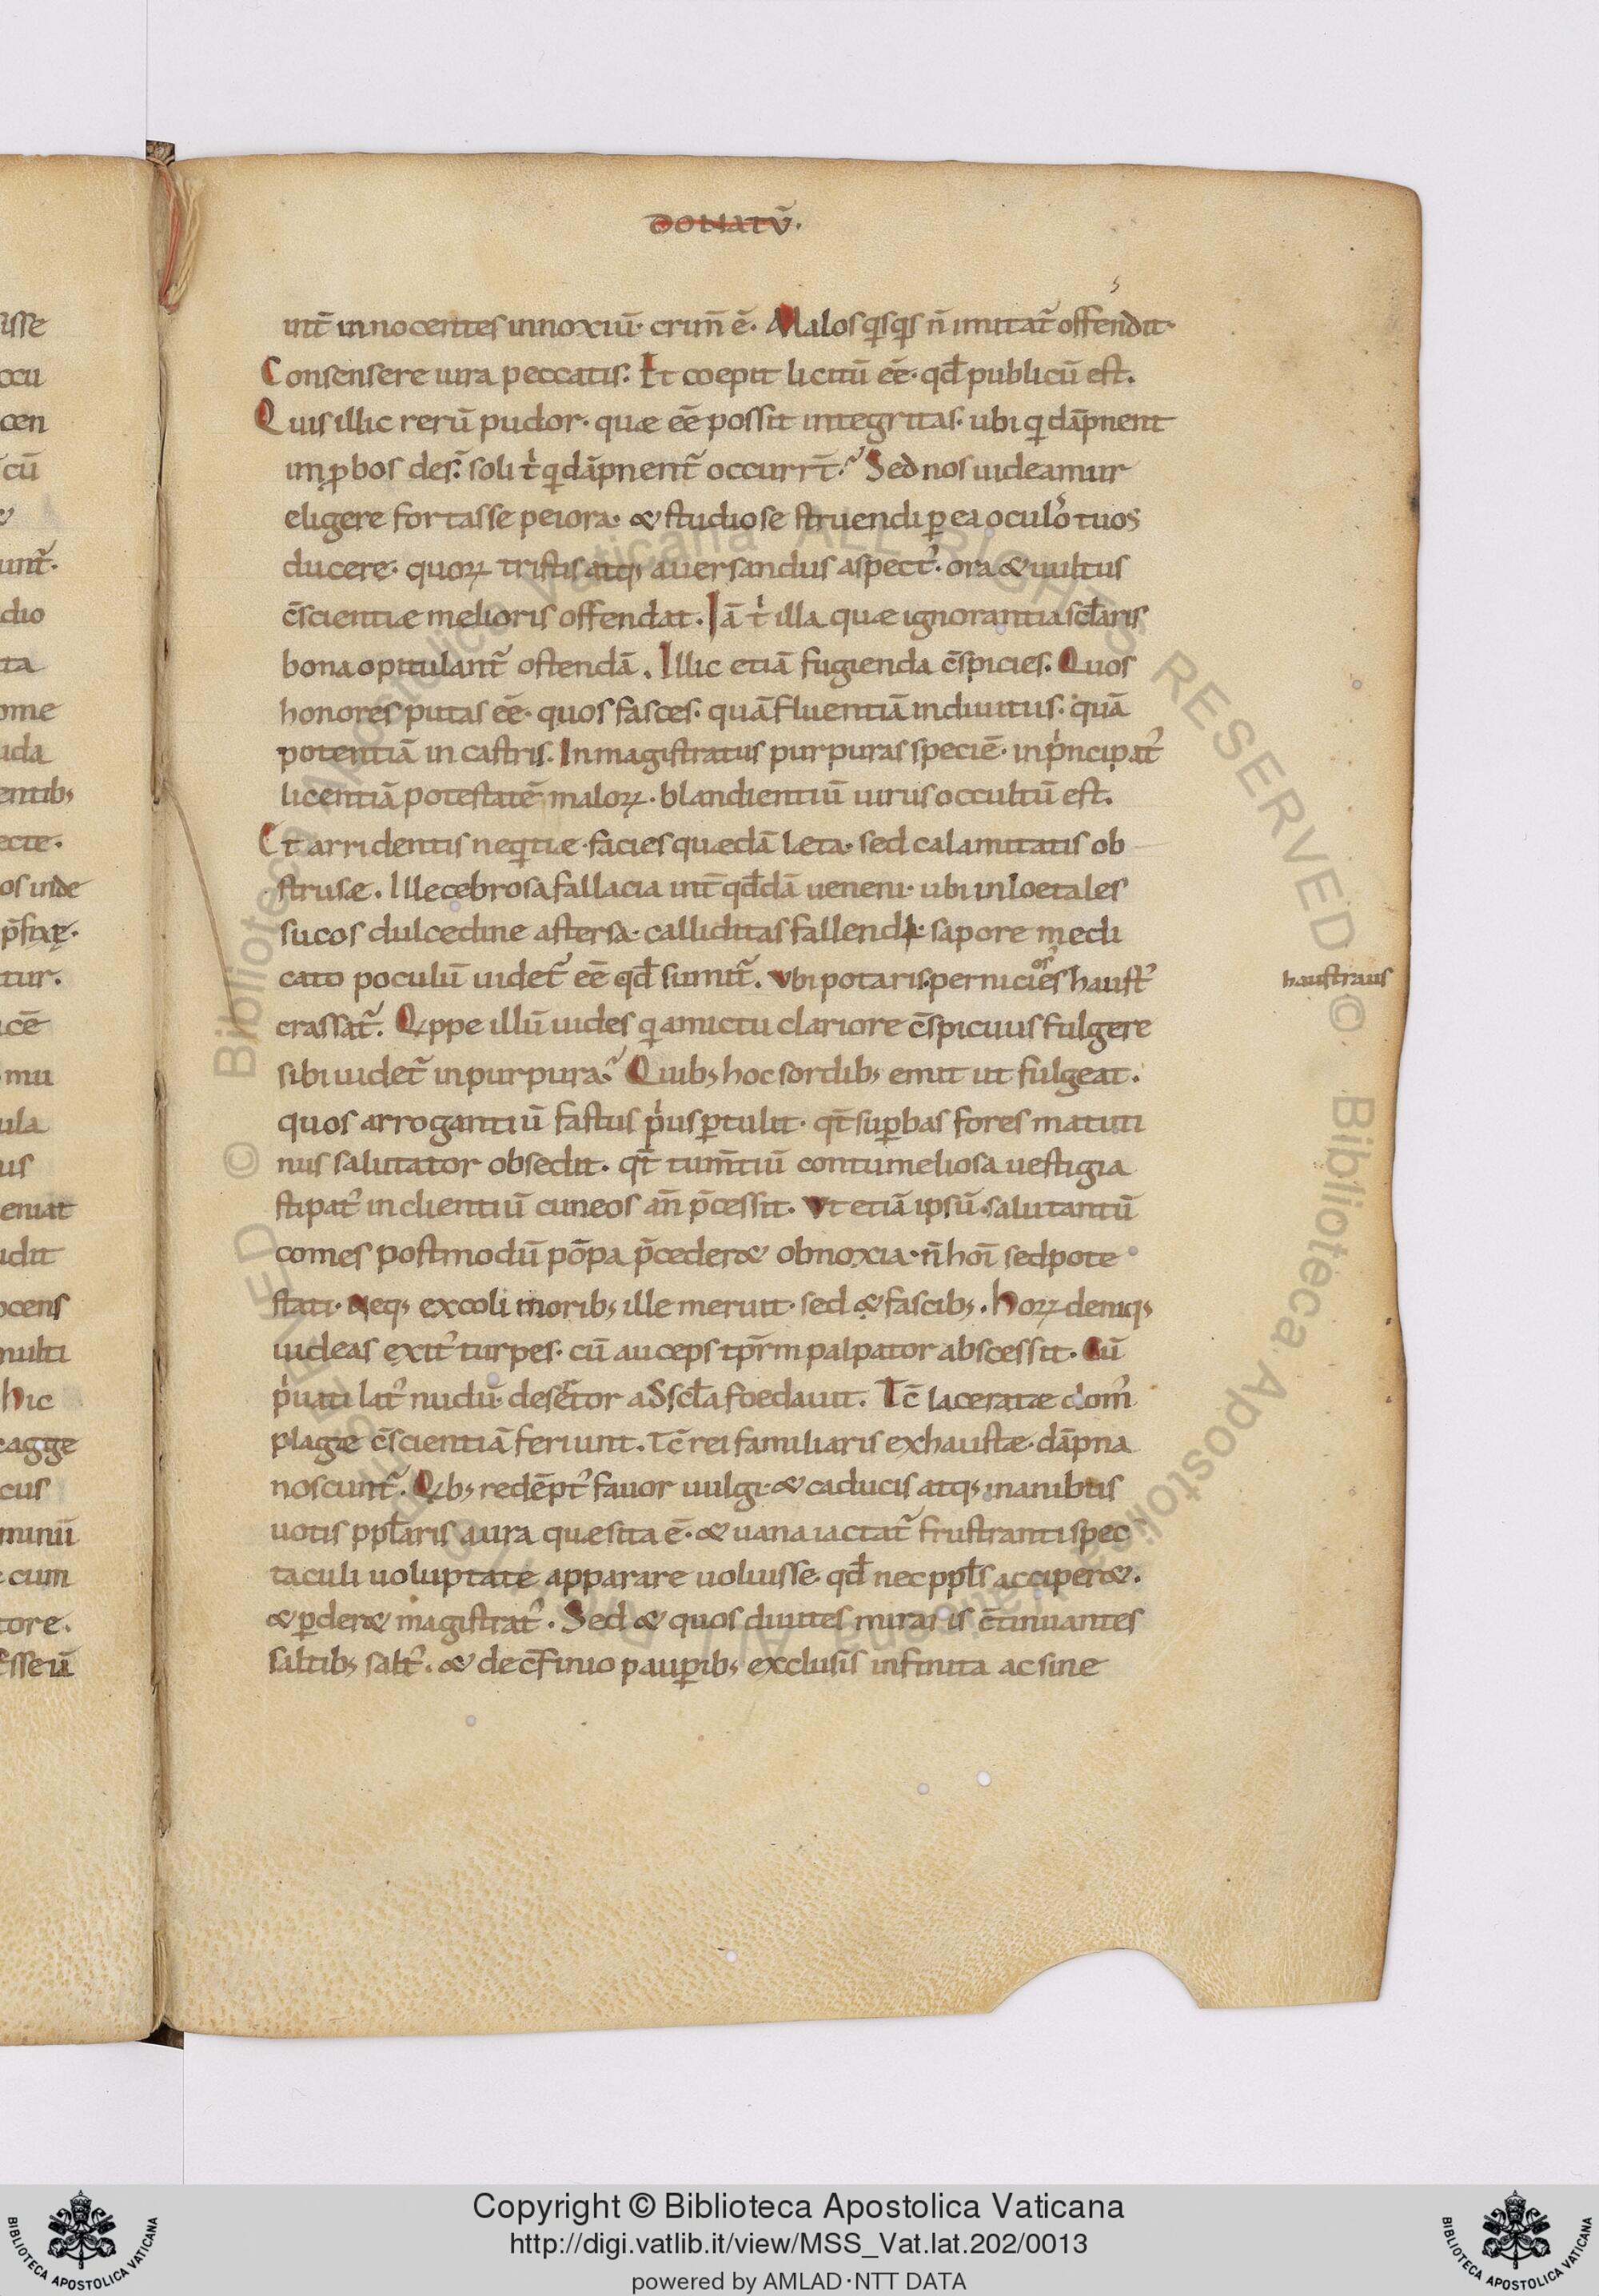 DONATŪ.
5
isse
int̄ innocentes innoxiū· crim̄ ē. Malos qisqis n̄ imitat̃ offendit·
ccu
Consensere iura peccatis. Et coepit licitū eē· qđ publicū est.
cen
Quis illic rerū pudor· quæ eē possit integritas· ubi qi dāpnent
cū
inꝓbos des̃: soli t̍ qi dāpnent̃ occurrt̄. Sed nos uideamur
eligere fortasse peiora· & studiose struendi ꝑ ea oculo᾽ tuos
unt̃.
ducere· quoꝝ tristis atq; auersandus aspect᾽. ora & uultus
dio
c̄scientiæ melioris offendat. Iā t̍ illa quæ ignorantia scl̄aris
ta
bona opitulant̃ ostendā. Illic etiā fugienda c̄spicies. Quos
ome
honores putas eē· quos fasces· quā fluentiā in diuitus· quā
uda
potentiā in castris. In magistratus purpuras speciē· in p̍ncipat᾽
entib;
licentiā potestatē maloꝝ. blandientiū uirus occultū est.
ecte.
Et arridentis neqitiæ facies quædā læta· sed calamitatis ob
os inde
strusæ. Illecebrosa fallacia int̄ qđdā ueneni· ubi in loetales
p̄fixę.
sucos dulcedine aftersa· calliditas fallendi· sapore medi
tur.
cato poculū uidet̃ eē qđ sumit̃. Vbi potaris· perniciores haust᾽
haustraus
cē
crassat̃. Qippe illū uides qi amictu clariore c̄spicuus fulgere
mu
sibi uidet̃ in purpura. Quib; hoc sordib; emit ut fulgeat.
ula
quos arrogantiū fastus p̍us ꝑtulit· qt̄ suꝑbas fores matuti
us
nus salutator obsedit. qt̄ tum̄tiū contumeliosa uestigia
eniat
stipat᾽ in clientiū cuneos an̄ p̄cessit. Vt etiā ipsū salutantū
udit
comes postmodū pōpa p̄ceder& obnoxia· n̄ hoī sed pote
ocens
stati· Neq; excoli moribꝫ ille meruit· sed & fascib;. Hoꝝ deniq;
multi
uideas exit᾽ turpes· cū auceps tp̄rm palpator abscessit. Cū
hic
p̍uati lat᾽ nudū desertor adscl̄a foedauit. Tc̄ laceratæ dom᾽
eagge
plagæ c̄scientiā feriunt. Tc̄ rei familiaris exhaustæ dāpna
cus
noscunt̃. Qib; redēpt᾽ fauor uulgi· & caducis atq; inanibus
minū
uotis ppl̄aris aura quæsita ē· & uana iactat̃ frustranti spec
cum
taculi uoluptate apparare uoluisse· qđ nec ppl̄s acciper&.
tore.
& ꝑder& magistrat᾽. Sed & quos diuites miraris c̄tinuantes
esseū
saltib; salt᾽. & de c̄finio pauꝑib; exclusis infinita ac sine
Copyright © Biblioteca Apostolica Vaticana
http://digi.vatlib.it/view/MSS_Vat.lat.202/0013
powered by AMLAD·NTT DATA